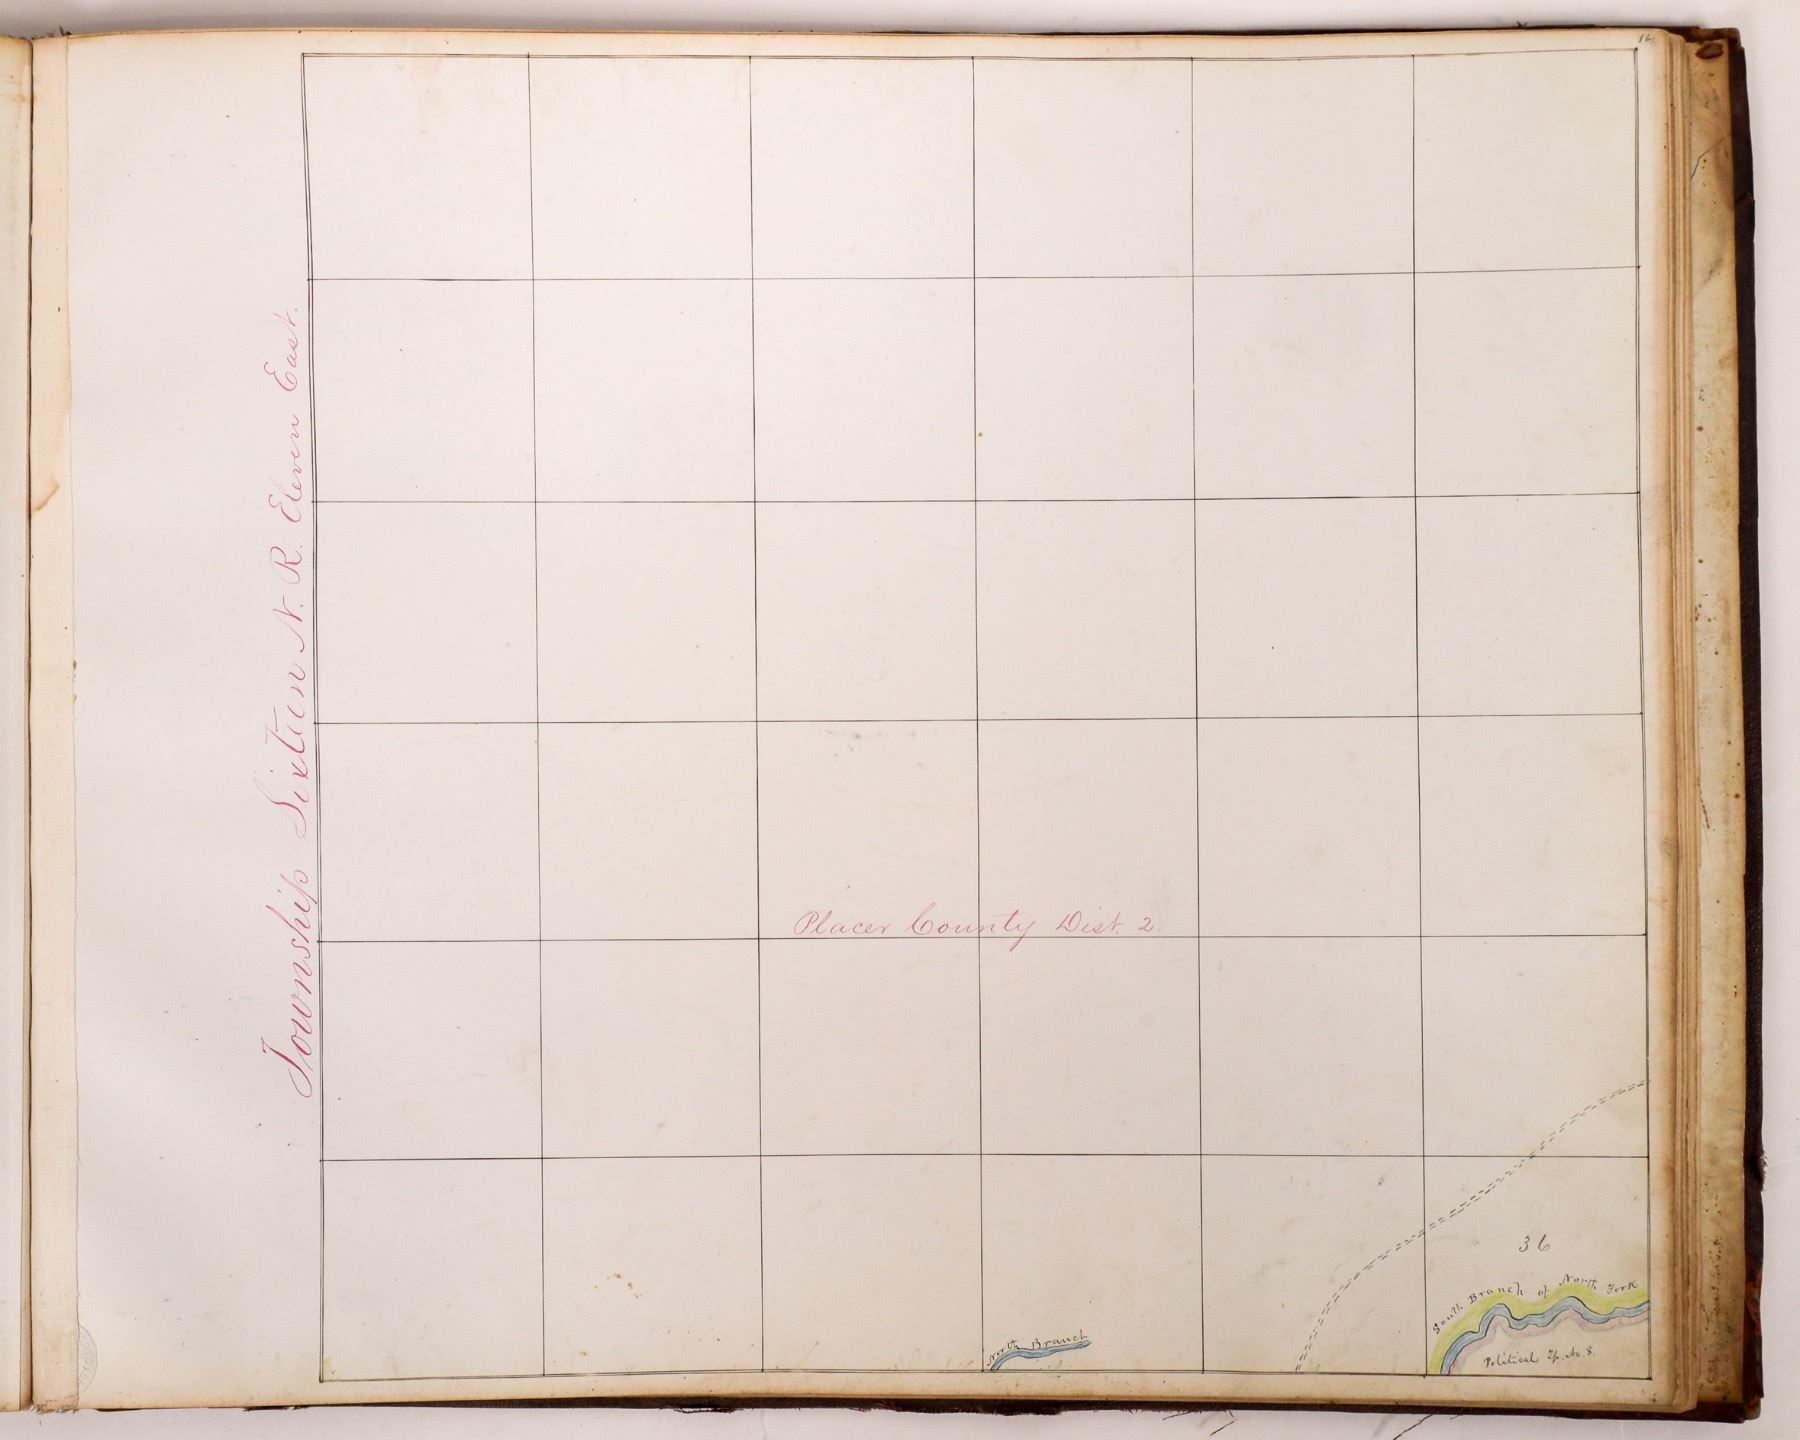 16
Township Sixteen N. R. Eleven East.
Placer County Dist. 2.
36
South Branch of North Fork
North Branch
Political Tp. No. 8.